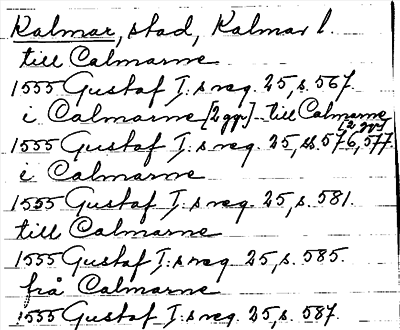 Kalmar, stad, Kalmar l.
till Calmarne
1555 Gustaf I:s reg. 25, s. 567.
i Calmarne [2 ggr] till Calmarne [2 ggr]
1555 Gustaf I:s reg. 25, ss. 576, 577.
i Calmarne
1555 Gustaf I:s reg. 25, s. 581.
till Calmarne
1555 Gustaf I:s reg. 25, s. 585.
från Calmarne
1555 Gustaf I:s reg. 25, s. 587.